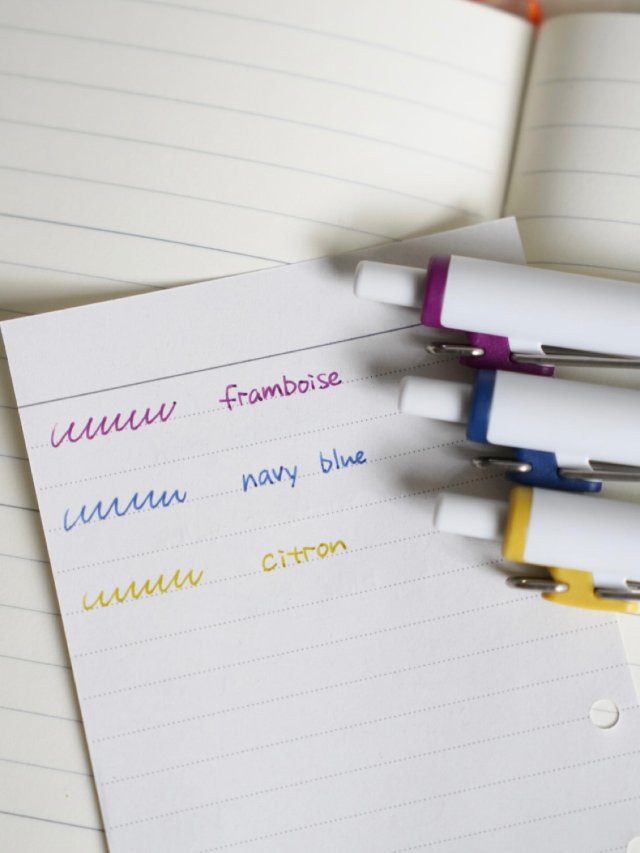 framboise
navy blue
citron